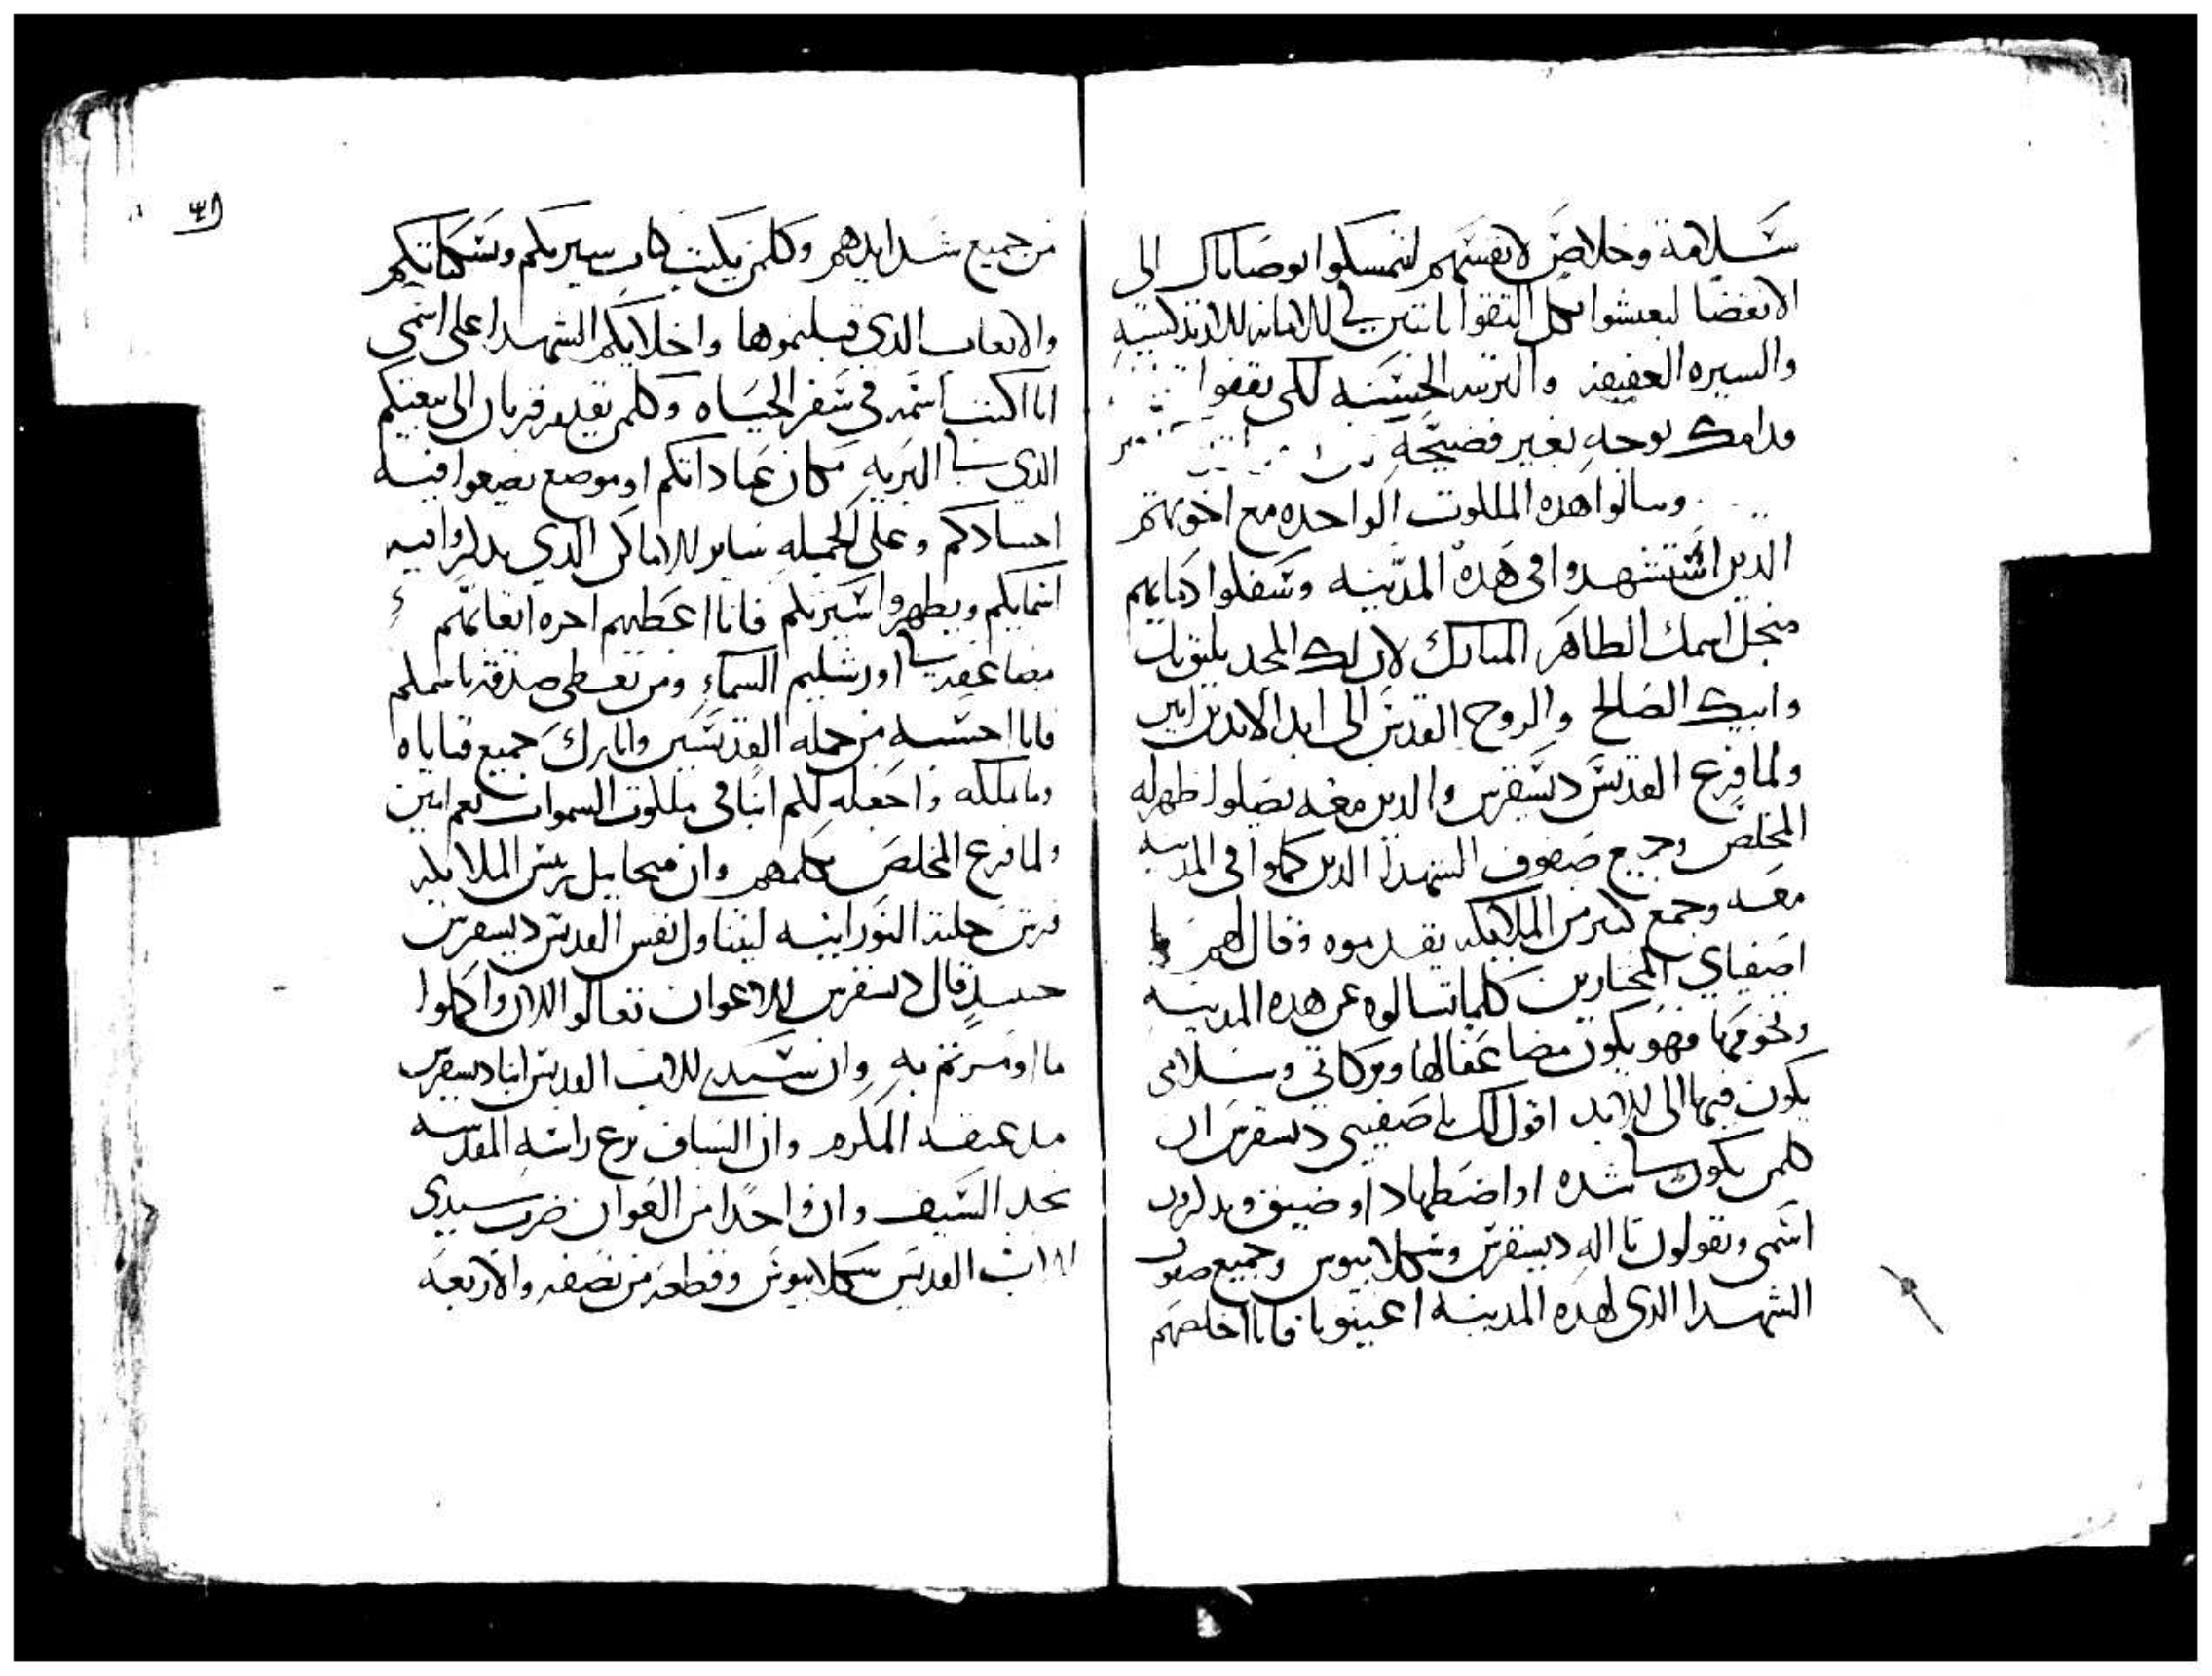 سلامة وخلاص لانفسهم ليتمسكوا بوصاياك الى
الانقضا ليعيشوا بكل التقوا بالامانه الارتدكسيه
والسيره العفيفه والتربيه الحسنه لكي يقفوا
قدامك بوجه بغير فضيحه
وينالوا هده الملكوت الواحده مع اخوتهم
الدين استشهدوا في هده المدينه وسفكوا دمايهم
منجل اسمك الطاهر المبارك لان لك المجد يليق بك
وابيك الصالح والروح القدس الى ابد الابدين امين
ولما فرغ القديس ديسقرس والدين معه يصلوا ظهر له
المخلص وجميع صفوف الشهدا الدين كملوا في المدينه
معه وجمع كتير من الملايكه يقدموه وقال لهم يا
اصفياي المختارين كلما تسالوه عن هده المدينه
وتخومها فهو يكون مضاعفا لها وبركاتي وسلامي
يكون فيها الى الابد اقول لك يا صفيي ديسقرس ان
كلمن يكون في شده او اضطهاد او ضيق ويدكرون
اسمي ويقولون يا اله ديسقرس وسكلابيوس وجميع صفوف
الشهدا الدي لهده المدينه اعينونا فانا اخلصهم
من جميع شدايدهم وكلمن يكتب كتاب سيرتكم وشهاداتكم
والاتعاب الدي قبلتموها واخلايكم الشهدا على اسمي
انا اكتب اسمه في سفر الحياه وكلمن يقدم قربان الى بيعتكم
الدي في البريه مكان عباداتكم او موضع يضعوا فيه
اجسادكم وعلى الجمله ساير الاماكن الدي يدكروا فيه
اسمايكم ويظهروا سيرتكم فانا اعطيهم اجره اتعابهم
مضاعفه في اورشليم السماء ومن يعطي صدقه باسمكم
فانا احسبه من جمله القديسين وابارك جميع قناياه
وما يملكه واجعله لكم ابنا في ملكوت السموات نعم امين
ولما فرغ المخلص يكلمهم وان ميخاييل ريس الملايكه
فرش حلته النورانيه ليتناول نفس القديس ديسقرس
حينيدٍ قال ديسقرس للاعوان تعالوا الان واكملوا
ما اومرتم به وان سيدي الاب القديس انبا ديسقرس
مد عنقه المكرم وان السياف نزع راسه المقدسه
بحد السيف وان واحدًا من الاعوان ضرب سيدي
الاب القديس سكلابيوس وقطعه من نصفه والاربعه